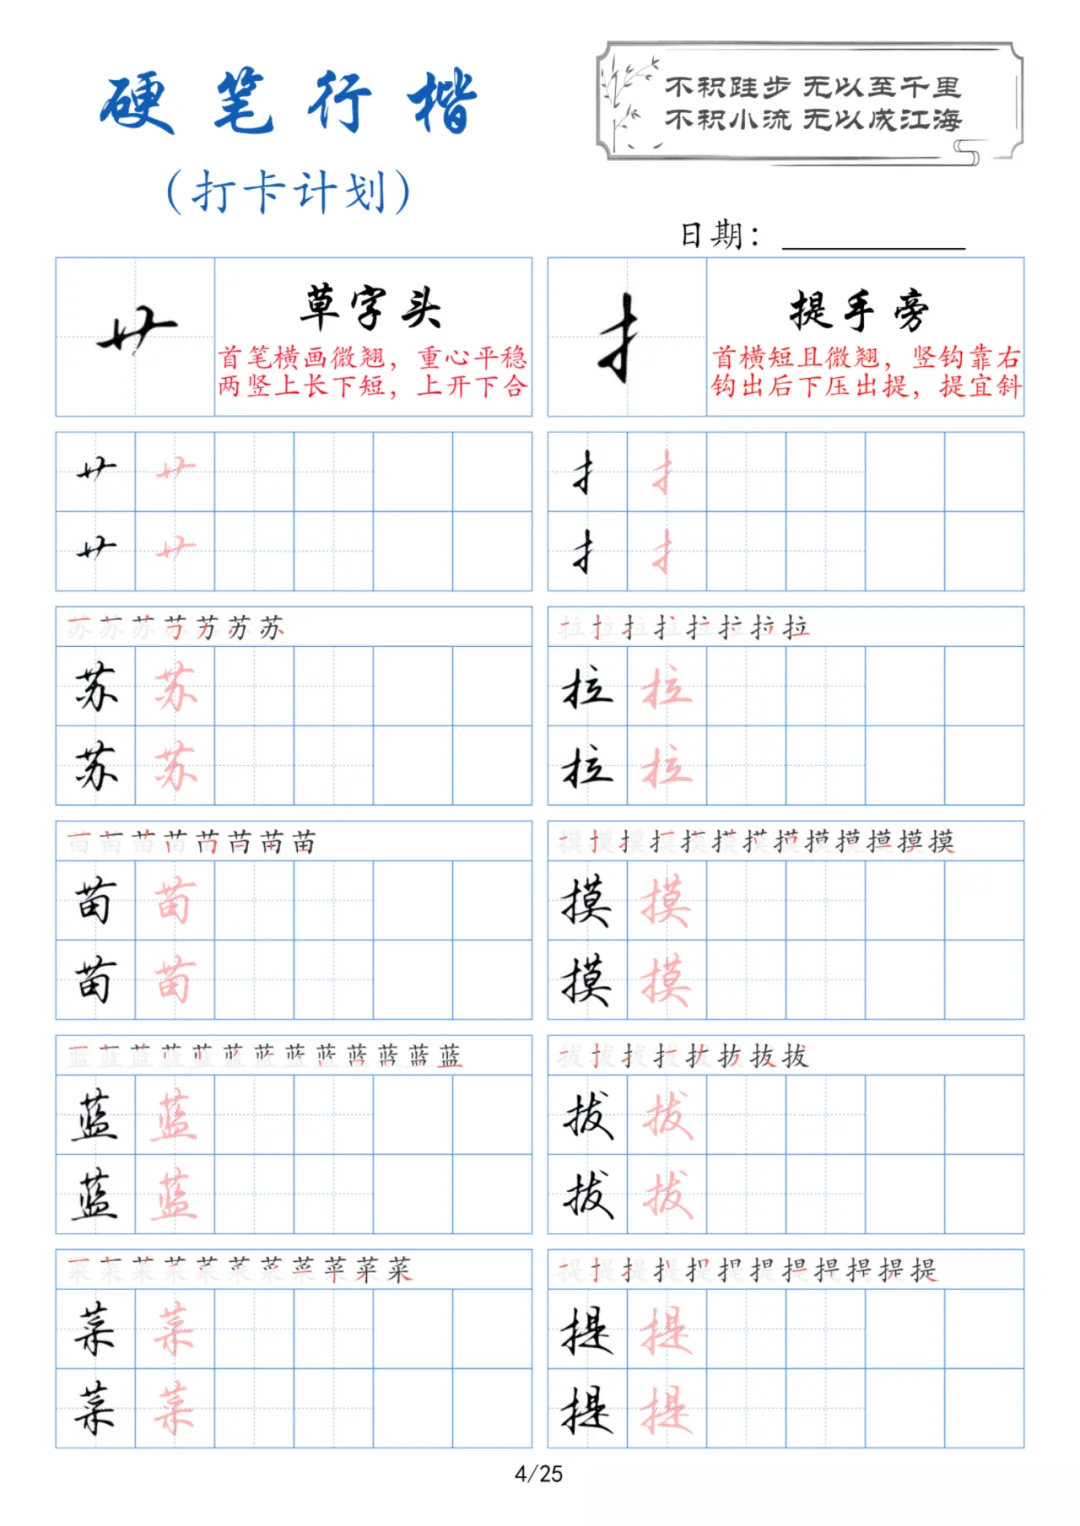 硬笔行楷
（打卡计划）
不积跬步 无以至千里
不积小流 无以成江海
日期：
艹
草字头
首笔横画微翘，重心平稳
两竖上长下短，上开下合
扌
提手旁
首横短且微翘，竖钩靠右
钩出后下压出提，提宜斜
艹 艹
艹 艹
扌 扌
扌 扌
苏 苏 苏 苏 苏 苏 苏
苏 苏
苏 苏
拉 拉 拉 拉 拉 拉 拉 拉
拉 拉
拉 拉
苗 苗 苗 苗 苗 苗 苗 苗
苗 苗
苗 苗
摸 摸 摸 摸 摸 摸 摸 摸 摸 摸 摸 摸 摸
摸 摸
摸 摸
蓝 蓝 蓝 蓝 蓝 蓝 蓝 蓝 蓝 蓝 蓝 蓝 蓝
蓝 蓝
蓝 蓝
拔 拔 拔 拔 拔 拔 拔 拔
拔 拔
拔 拔
菜 菜 菜 菜 菜 菜 菜 菜 菜 菜 菜
菜 菜
菜 菜
提 提 提 提 提 提 提 提 提 提 提 提
提 提
提 提
4/25